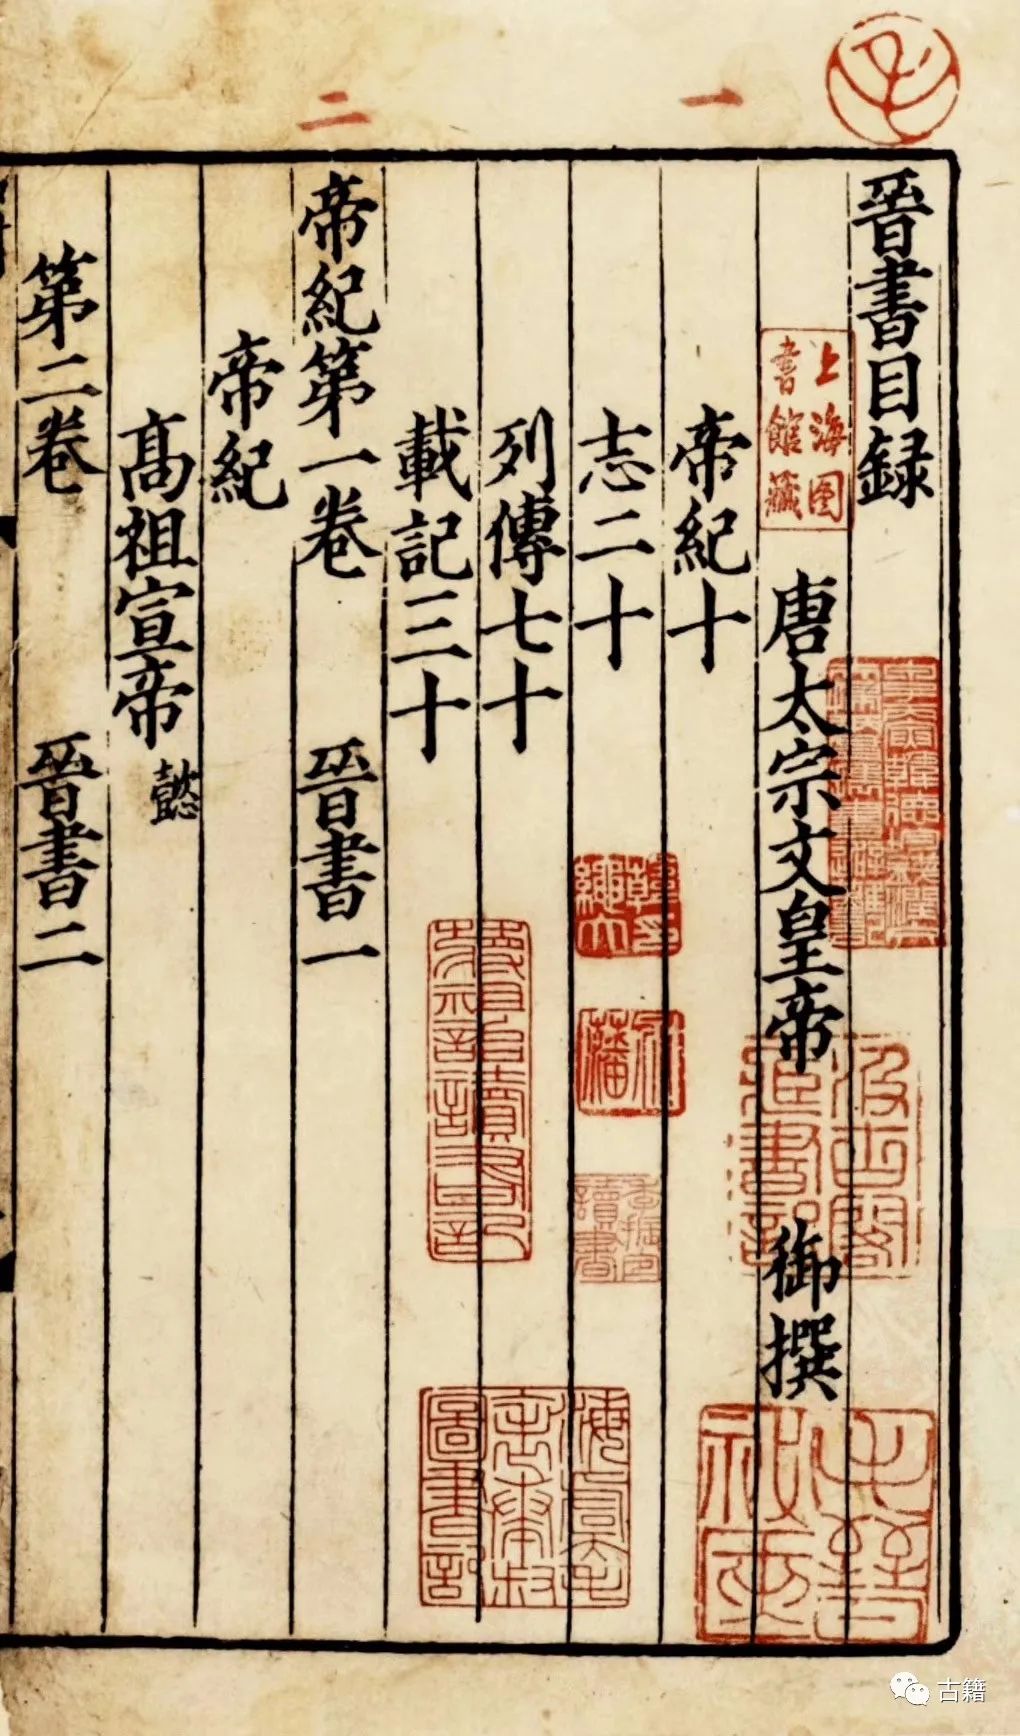 一
二
晉書目録
唐太宗文皇帝 御撰
帝紀十
志二十
列傳七十
載記三十
帝紀第一卷 晉書一
帝紀
髙祖宣帝 懿
第二卷 晉書二
上海图
書館藏
汲古閣
毛晉
讀書
圖書記
古籍